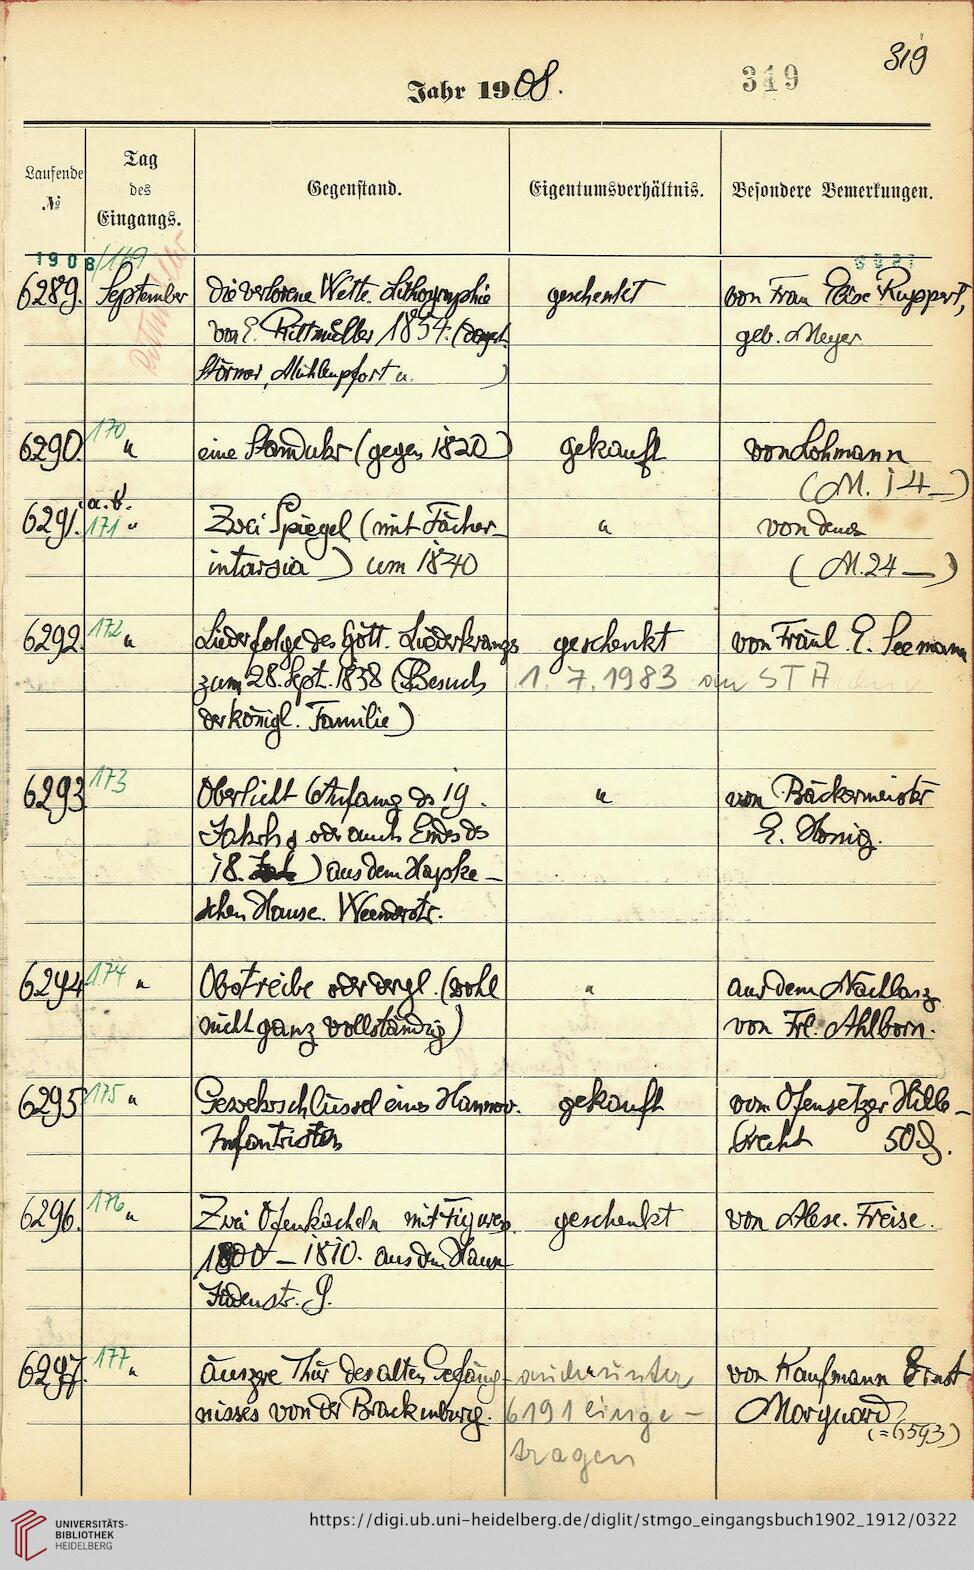 319
Jahr 1908.
319
Laufende
№
Tag
des
Eingangs.
Gegenstand.
Eigentumsverhältnis.
Besondere Bemerkungen.
1908/169
Rittmüller
6289. September die verlorene Wette. Lithographie geschenkt von Frau Elise Ruppert,
von E. Rittmüller 1834. (dargest. geb. Meyer
Störmer, Mühlenpfort u. )
6290. 170 " eine Standuhr (gegen 1820) gekauft von Lohmann
(M. 14 —)
a. b.
6291. 171 " Zwei Spiegel (mit Fächer- " von dems.
intarsia) um 1840 (M. 24 —)
6292. 172 " Liederfolge des Gött. Liederkranzes geschenkt von Fräul. E. Seemann
zum 28. Sept. 1838 (Besuch 1. 7. 1983 an STA
der königl. Familie)
6293. 173 Oberlicht (Anfang des 19. " von Bäckermeister
Jahrh. oder auch Endes des E. Honig.
18. ) aus dem Hapke-
schen Hause. Weenderstr.
6294 174 " Obstreibe oder dergl. (wohl " aus dem Nachlass
nicht ganz vollständig) von Frl. Ahlborn.
6295 175 " Gewehrschlüssel eines Hannov. gekauft vom Ofensetzer Hille-
Infantristen brecht 50 ₰.
6296. 176 " Zwei Ofenkacheln mit Figuren geschenkt von Alex. Freise.
1800 – 1810. aus dem Hause
Judenstr. 9.
6297. 177 " äussere Thür des alten Gefäng- auch unter von Kaufmann Ernst
nisses von der Brackenburg. 6191 einge- Morguard
(= 6593)
tragen
UNIVERSITÄTS-
BIBLIOTHEK
HEIDELBERG
https://digi.ub.uni-heidelberg.de/diglit/stmgo_eingangsbuch1902_1912/0322